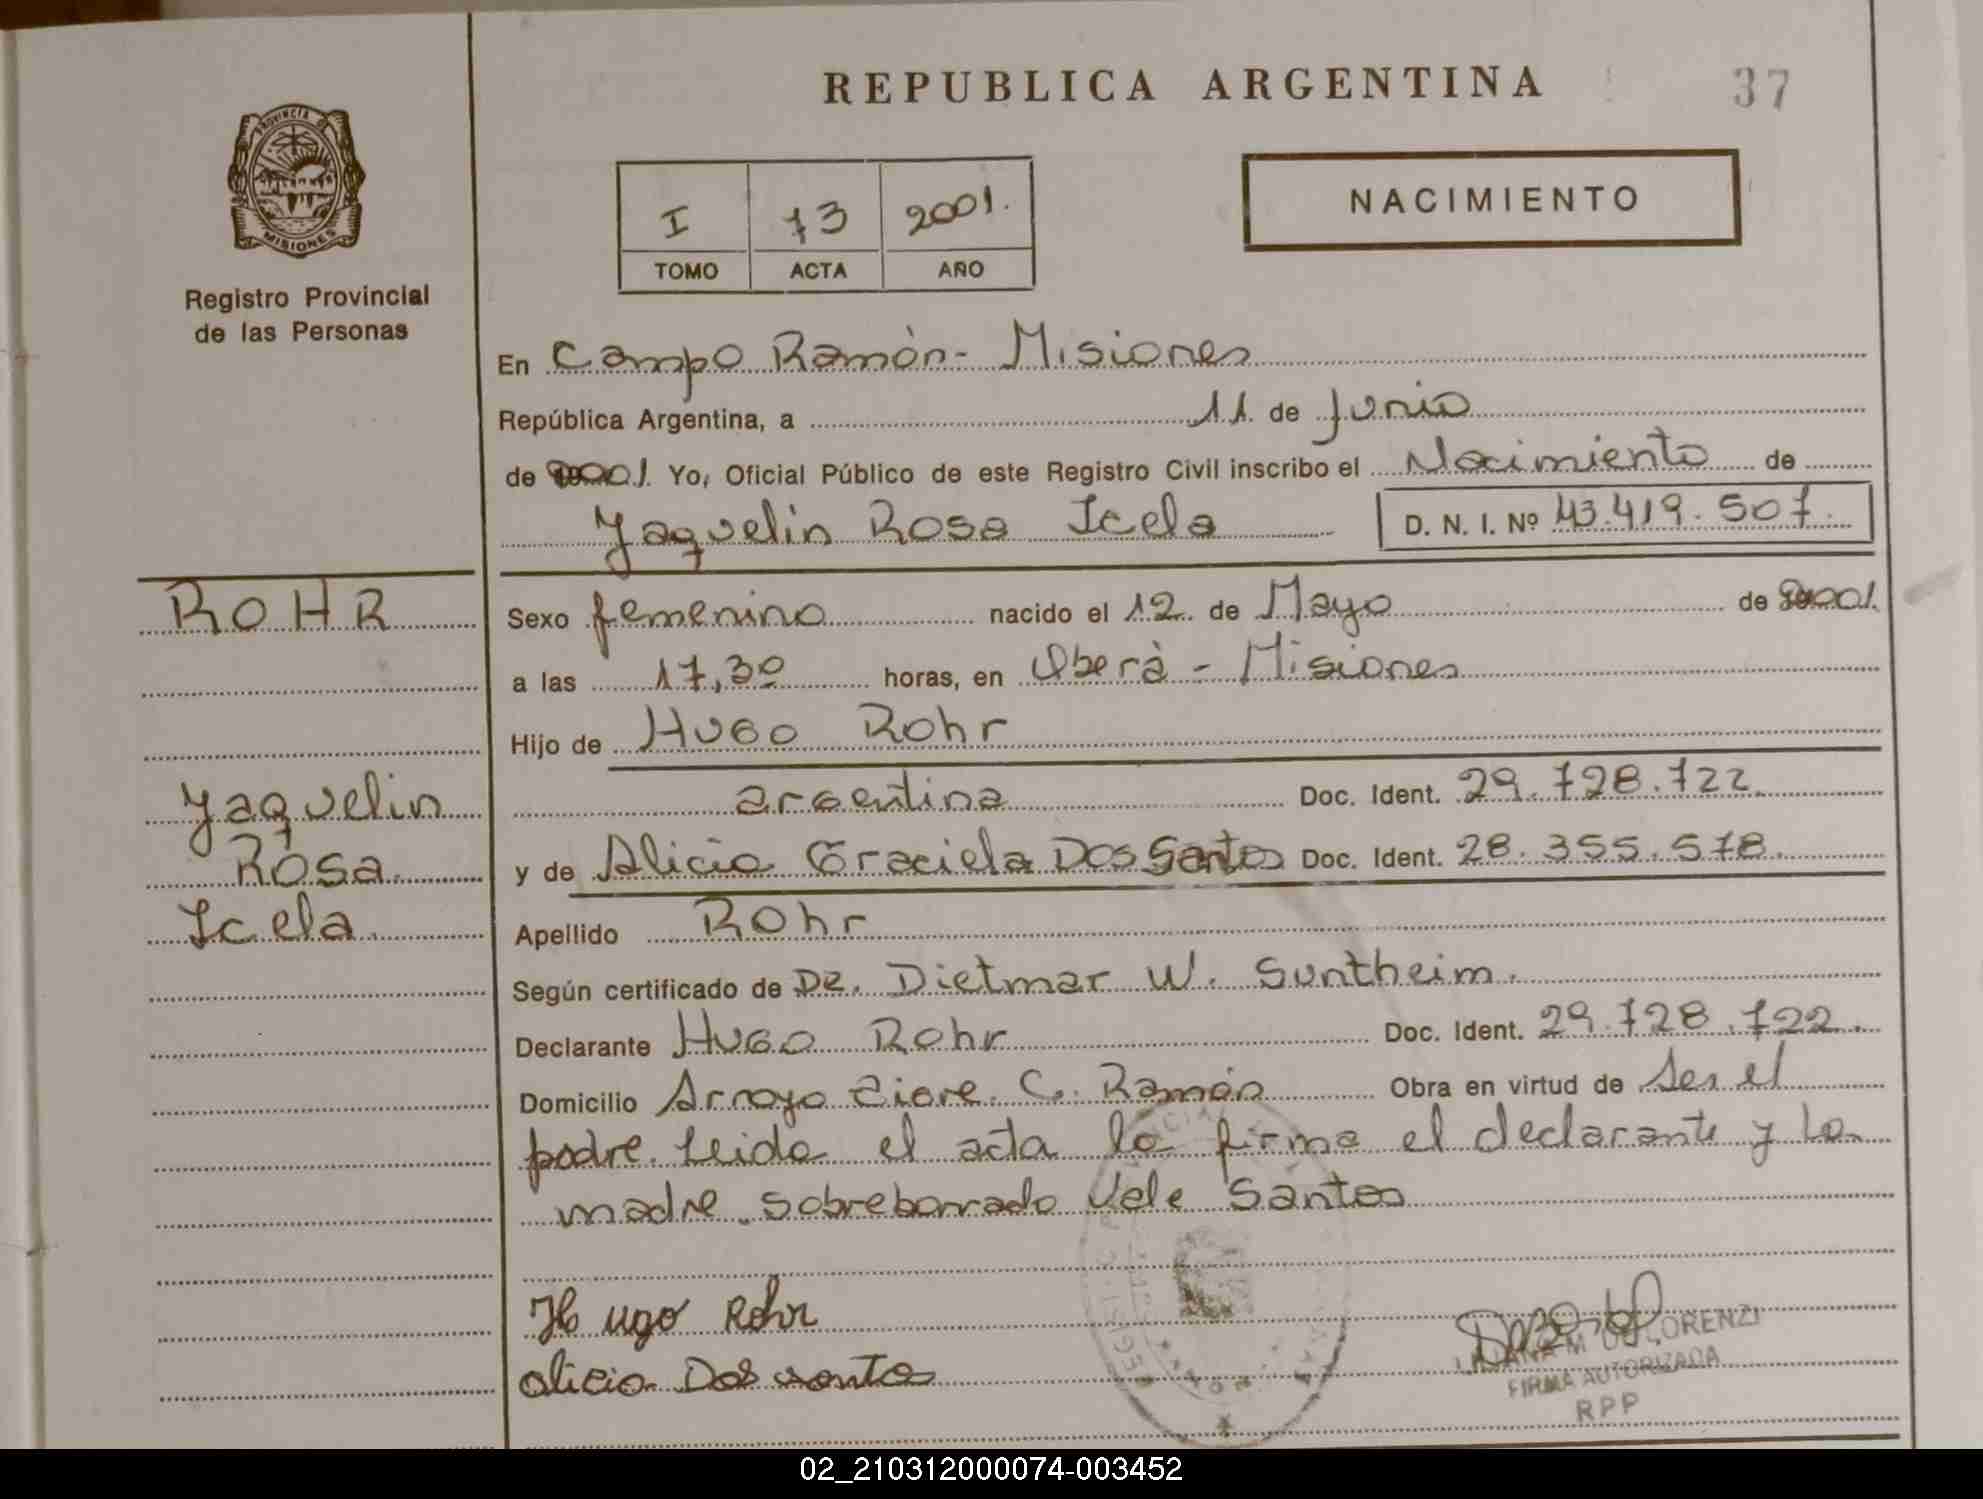 REPUBLICA ARGENTINA
37
PROVINCIA DE
MISIONES
Registro Provincial
de las Personas
I 73 2001.
TOMO ACTA AÑO
NACIMIENTO
En Campo Ramón - Misiones
República Argentina, a 11 de Junio
de 2001. Yo, Oficial Público de este Registro Civil inscribo el Nacimiento de
Yaquelin Rosa Icela D. N. I. Nº 43.419.507.
ROHR
Yaquelin
Rosa
Icela
Sexo femenino nacido el 12 de Mayo de 2001.
a las 17,30 horas, en Oberá - Misiones
Hijo de Hugo Rohr
argentina Doc. Ident. 29.728.722
y de Alicia Graciela Dos Santos Doc. Ident. 28.355.578.
Apellido Rohr
Según certificado de DR. Dietmar W. Suntheim.
Declarante Hugo Rohr Doc. Ident. 29.728.722.
Domicilio Arroyo C. Ramón Obra en virtud de ser el
padre. Leida el acta la firma el declarante y la
madre. sobreborrado Vale Santos
Hugo Rohr
alicia Dos santos
M DE LORENZI
FIRMA AUTORIZADA
RPP
02_210312000074-003452